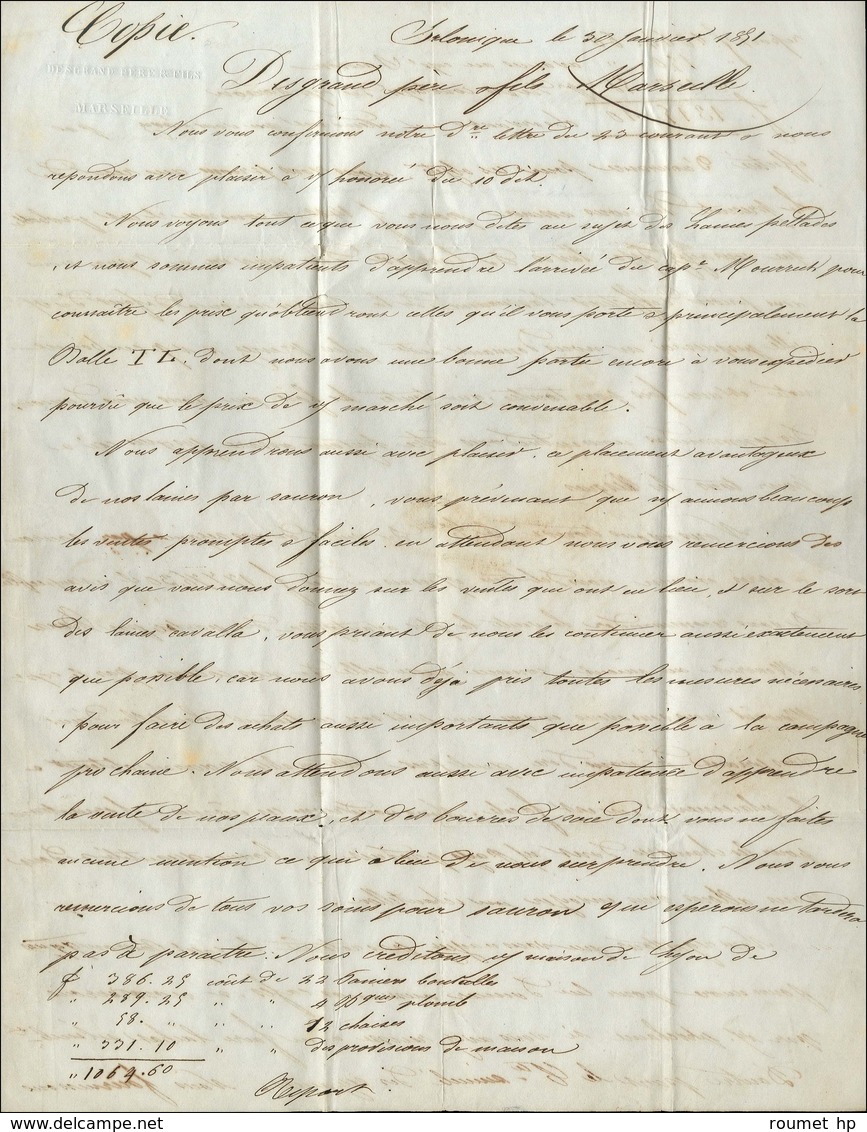 Copie.
Salonique le 30 Janvier 1851
DESGRAND PERE & FILS
MARSEILLE
Desgrand père & fils Marseille
Nous vous confirmons notre dre lettre du 23 courant & nous
repondons avec plaisir à v/ honorée du 10 dit.
Nous voyons tout ce que vous nous dites au sujet des laines pellades
et nous sommes impatients d'apprendre l'arrivée du cape Mourrut pour
connaître les prix qu'obtiendront celles qu'il vous porte & principalement la
Balle TL. dont nous avons une bonne partie encore à vous expedier
pourvû que le prix de v/ marché soit convenable.
Nous apprendrons aussi avec plaisir, ce placement avantageux
de nos laines par sauron, vous prévenant que n/ aimons beaucoup
les ventes promptes & faciles. en attendant nous vous remercions des
avis que vous nous donnez sur les ventes qui ont eu lieu, & sur le sort
des laines cavalla, vous priant de nous les continuer aussi exactement
que possible, car nous avons déja pris toutes les mesures nécessaires
pour faire des achats aussi importants que possible à la campagne
prochaine. Nous attendons aussi avec impatience d'apprendre
la vente de nos peaux, et des bourres de soie dont vous ne faites
aucune mention ce qui à lieu de nous surprendre. Nous vous
remercions de tous vos soins pour sauron que esperons ne tardera
pas à paraitre. Nous créditons v/ maison de Lyon de
f 386.25 coût de 22 Paniers bouteilles
" 289.25 " " 4 Bques plomb
" 58. " " " 12 chaises
" 331.10 " " des provisions de maison
" 1064.60
Report.